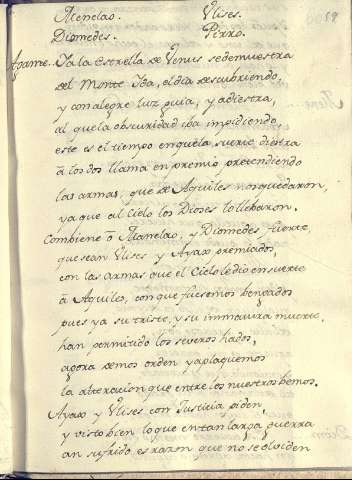 59
Menelao. Ulises.
Diomedes. Pirro.
Agame. Ya la estrella de Venus se demuestra
del Monte Ida, el dia descubriendo,
y con alegre luz guia, y adiestra,
al que la obscuridad iba impidiendo,
este es el tiempo en que la suerte diestra
â los dos llama en premio pretendiendo
las armas, que de Aquiles nos quedaron,
ya que al Cielo los Dioses lo llebaron.
Combiene ô Menelao, y Diomedes fuerte,
que sean Ulises y Ayax premiados,
con las armas que el Cielo le dio en suerte
â Aquiles, con que fuesemos bengados
pues ya su triste, y su immatura muerte,
han permitido los severos hados,
agora demos orden y aplaquemos
la alteracion que entre los nuestros bemos.
Ayax y Ulises con Justicia piden,
y visto bien lo que en tan larga guerra
an sufrido es razon que no se olviden